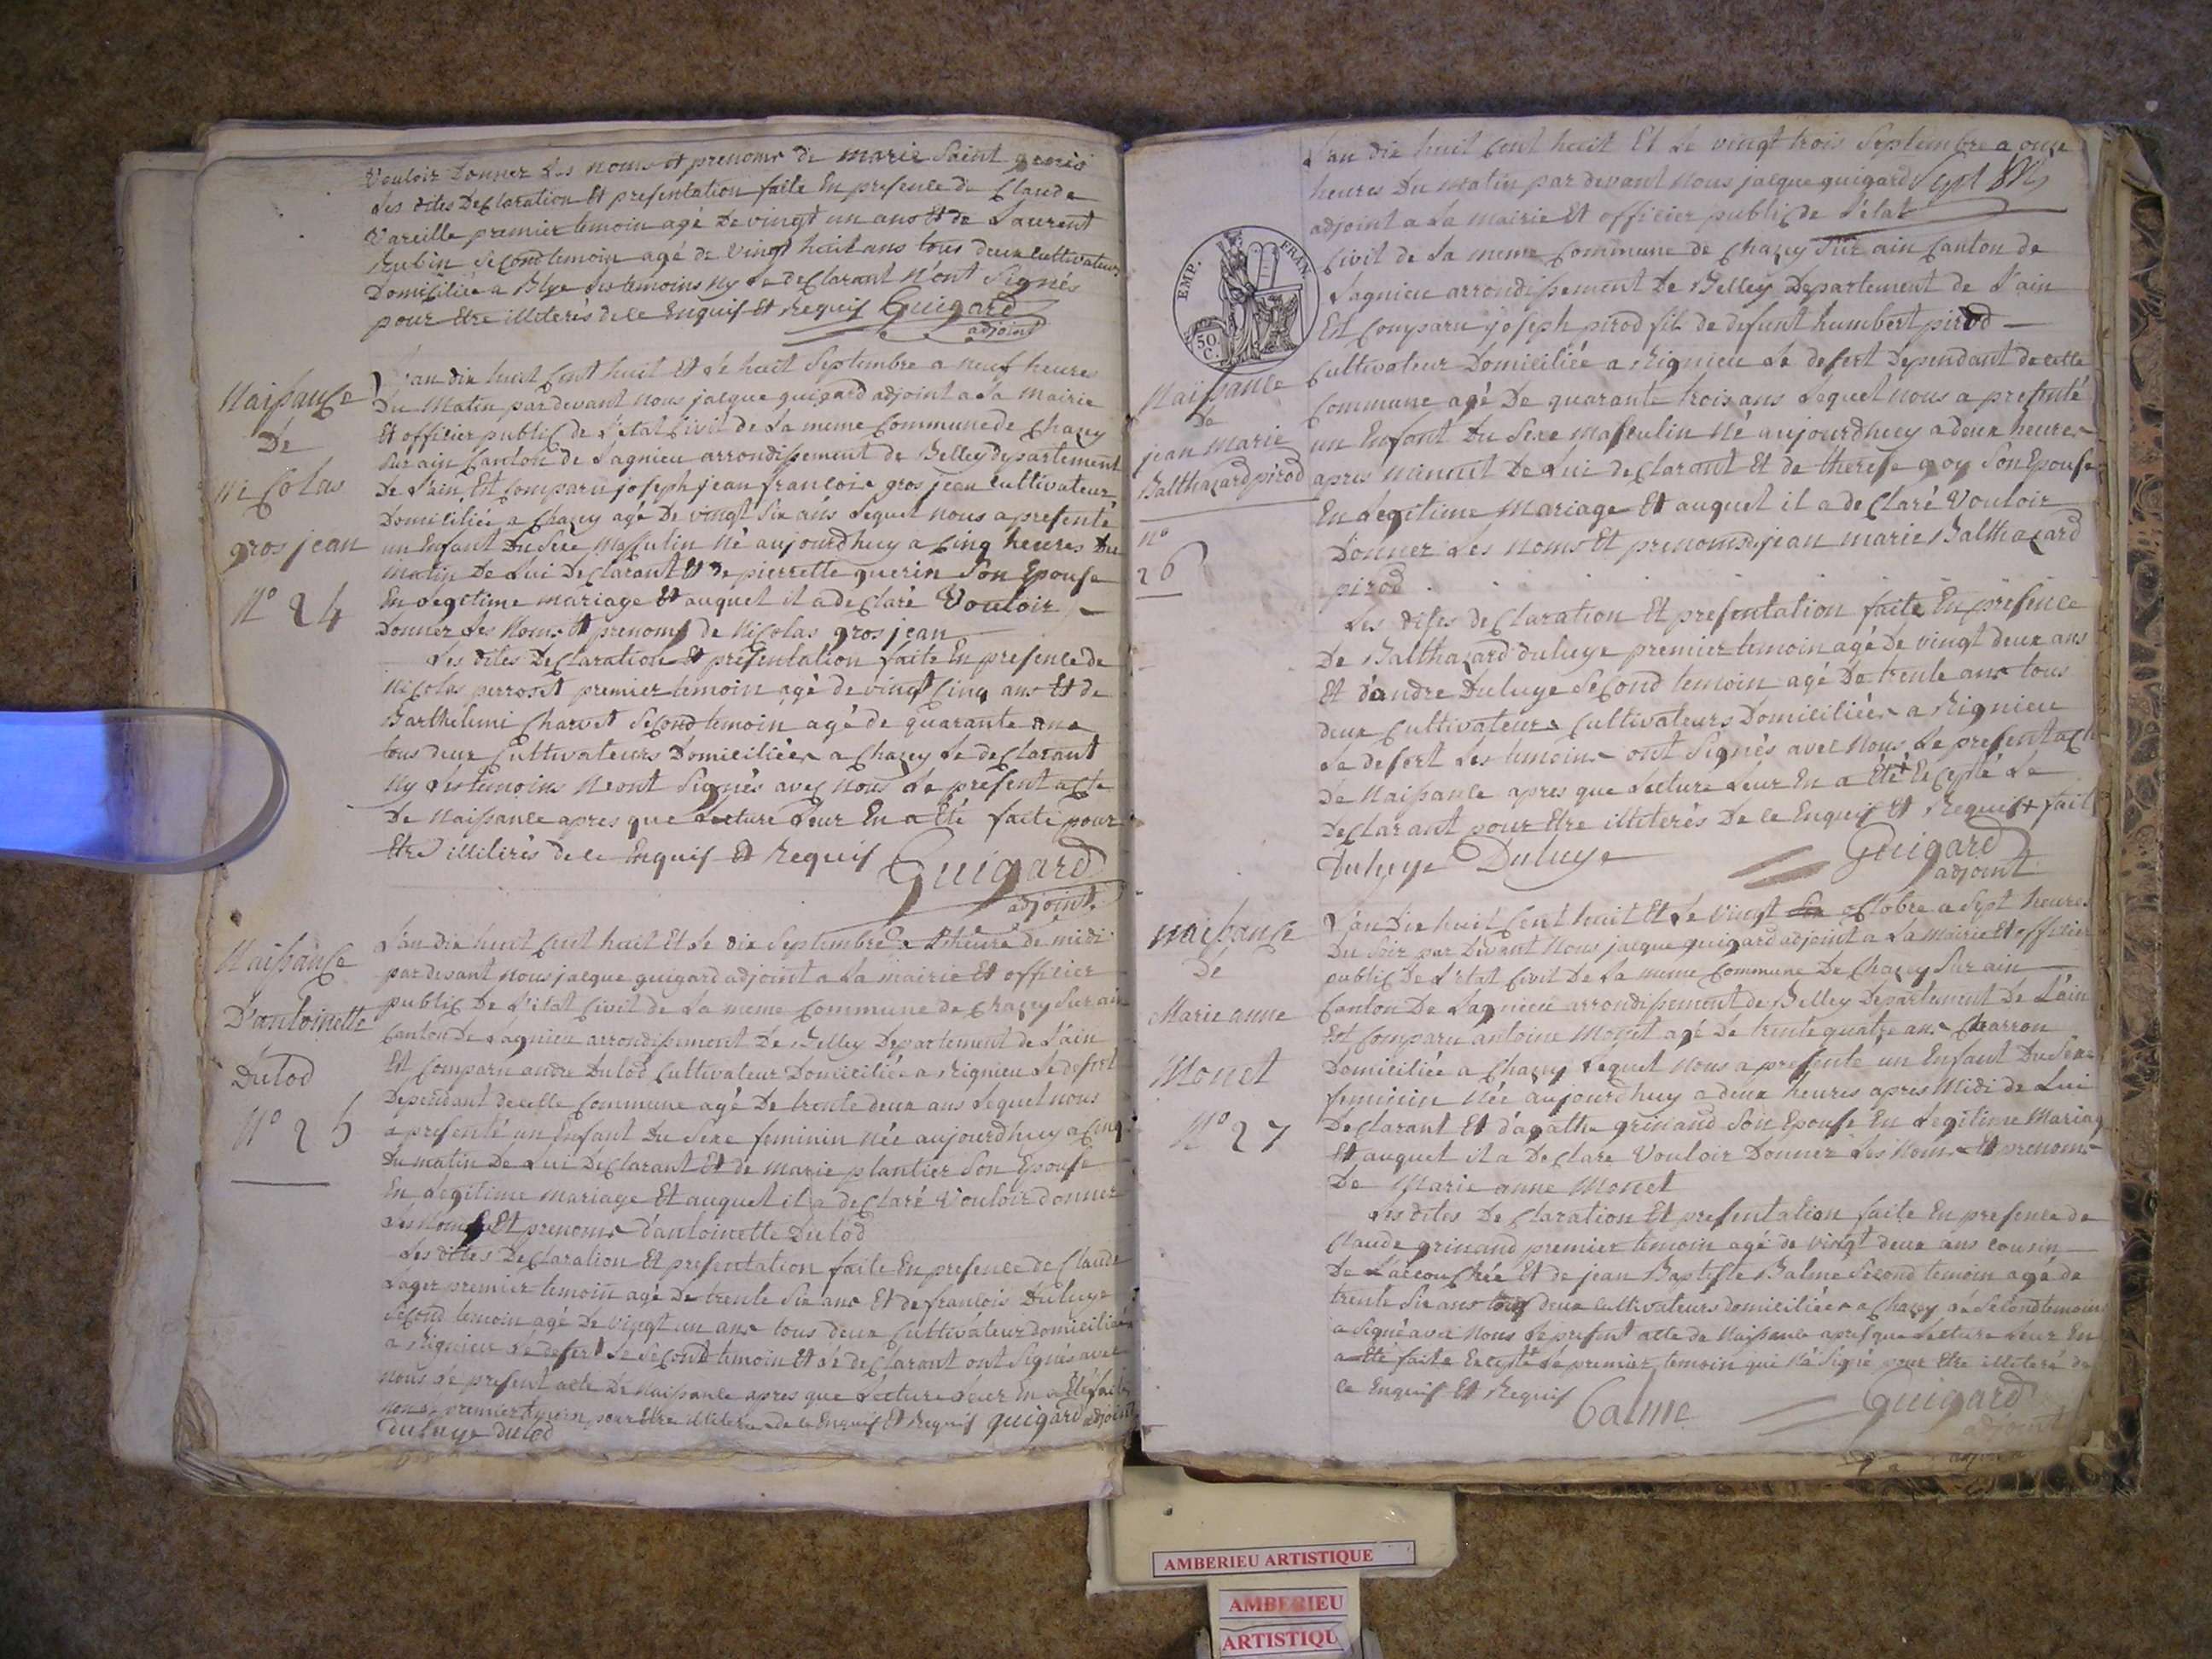 Vouloir Donner Les noms et prenoms de marie Saint genis
Les dites Declaration Et presentation faite En presence de Claude
Vareille premier temoin agé De vingt un ans Et de Laurent
Rubin Second temoin agé de Vingt huit ans tous deux cultivateurs
Domiciliée a Blye Les temoins Ny Le declarant N'ont Signés
pour Etre illiterés de ce Enquis Et Requis Guigard
adjoint
Naissance
De
Nicolas
gros jean
N° 24
L'an dix huit Cent huit Et Le huit Septembre a neuf heures
Du Matin pardevant nous jacque guigard adjoint a La mairie
Et officier public de L'etat Civil de La meme Commune de Chazey
Sur ain Canton de Lagnieu arrondissement de Belley departement
De L'ain Est Comparu joseph jean francois gros jean cultivateur
Domiciliée a Chazey agé De vingt Six ans Lequel nous a presenté
un Enfant Du Sexe Masculin Né aujourdhuy a Cinq heures Du
matin De Lui Declarant Et De pierrette guerin Son Epouse
En Legitime mariage Et auquel il a declaré Vouloir
Donner Les Noms Et prenoms de Nicolas gros jean
Les dites Declaration Et presentation faite En presence de
Nicolas perroset premier temoin agé de vingt Cinq ans Et de
Barthelemi Charvet Second temoin agé de quarante ans
tous deux Cultivateurs Domiciliées a Chazey Le declarant
Ny Les temoins N'eont Signés avec Nous Le present acte
De Naissance apres que Lecture Leur En a Eté faite pour
Etre illiterés de ce Enquis Et Requis Guigard
adjoint
Naissance
D'antoinette
Dulod
N° 25
L'an dix huit Cent huit Et Le dix Septembre a L'heure de midi
pardevant nous jacque guigard adjoint a La mairie Et officier
public De L'etat Civil de La meme Commune de Chazey Sur ain
Canton De Lagnieu arrondissement De Belley Departement de L'ain
Est Comparu andre Dulod Cultivateur Domiciliée a Rignieu Le desert
Dependant de cette Commune agé De trente deux ans Lequel nous
a presenté un Enfant Du Sexe feminin Née aujourdhuy a Cinq
Du matin De Lui Declarant Et de marie plantier Son Epouse
En Legitime mariage Et auquel il a declaré Vouloir donner
Les Noms Et prenoms d'antoinette Dulod
Les dittes Declaration Et presentation faite En presence de Claude
Lager premier temoin agé De trente Six ans Et de francois Duluye
Second temoin agé De vingt un ans tous deux Cultivateur domiciliées
a Rignieu Le desert Le Second temoin Et Le declarant ont Signés avec
nous Le present acte De Naissance apres que Lecture Leur En a Eté faite
premier temoin pour Etre illiteré de ce Enquis Et Requis guigard adjoint
Duluye Dulod
L'an dix huit Cent huit Et Le vingt trois Septembre a onze
heures Du Matin pardevant Nous jacque guigard
adjoint a La mairie Et officier public de L'etat
Civil de La meme Commune de Chazey Sur ain Canton de
Lagnieu arrondissement De Belley Departement de L'ain
Est Comparu joseph pirod fils de defunt humbert pirod
Cultivateur Domiciliée a Rignieu Le desert Dependant de cette
Commune agé De quarante trois ans Lequel nous a presenté
un Enfant Du Sexe Masculin Né aujourdhuy a deux heures
apres minuit De Lui declarant Et de therese goy Son Epouse
En Legitime Mariage Et auquel il a declaré Vouloir
Donner Les Noms Et prenoms jean marie Balthazard
pirod
EMP. FRAN.
50.
C.
Naissance
De
jean Marie
Balthazard pirod
n°
26
Les dites declaration Et presentation faite En presence
De Balthazard duluye premier temoin agé De vingt deux ans
Et d'andre Duluye Second temoin agé De trente ans tous
deux Cultivateurs Cultivateurs Domiciliées a Rignieu
Le desert Les temoins ont Signés avec Nous Le present acte
De Naissance apres que Lecture Leur En a Eté Excepté Le
Declarant pour Etre illiterés De ce Enquis Et Requis + fait
Duluye Duluye Guigard
adjoint
Naissance
De
Marie anne
Monet
N° 27
L'an Dix huit Cent huit Et Le Vingt octobre a Sept heures
Du Soir par Devant Nous jacque guigard adjoint a La Mairie Et officier
public De L'etat Civil De La meme Commune De Chazey Sur ain
Canton De Lagnieu arrondissement de Belley Departement De L'ain
Est Comparu antoine Monet agé De trente quatre ans Charron
Domiciliée a Chazey Lequel Nous a presenté un Enfant Du Sexe
feminin Née aujourdhuy a deux heures apres Midi de Lui
Declarant Et d'agathe grinand Son Epouse En Legitime Mariag
Et auquel il a Declare Vouloir Donner Les Noms Et prenoms
De Marie anne Monet
Les dites Declaration Et presentation faite En presence de
Claude grinand premier temoin agé de vingt deux ans cousin
De L'accouchée Et de jean Baptiste Balme Second temoin agé de
trente Six ans tous deux cultivateurs domiciliées a Chazey Le Second temoin
a Signé avec Nous Le present acte de Naissance apres que Lecture Leur En
a Eté faite Excepté Le premier temoin qui N'a Signé pour Etre illiteré de
ce Enquis Et Requis Balme Guigard
adjoint
AMBERIEU ARTISTIQUE
AMBERIEU
ARTISTIQU